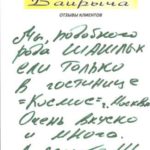 Байрыча
ОТЗЫВЫ КЛИЕНТОВ
Мы, подобного
рода шашлык
ели только
в гостинице
"Космос" г. Москва
Очень вкусно
и много.